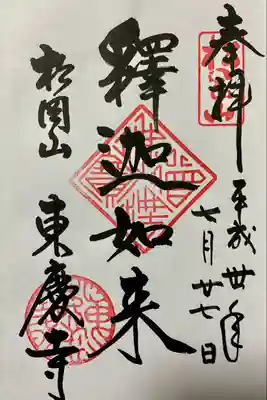 奉拝
平成卅年
七月廿七日
釋迦如来
松岡山
東慶寺